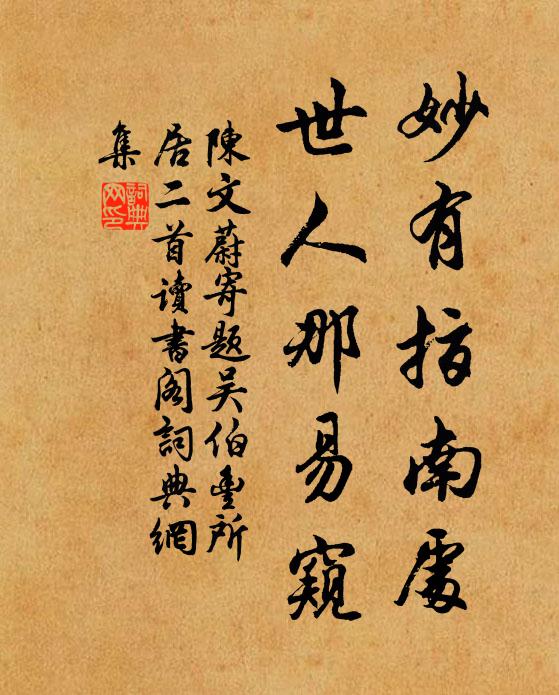 妙有指南處
世人那易窺
陳文蔚寄題吴伯豐所
居二首讀書閣詞典網
集
詞典网印